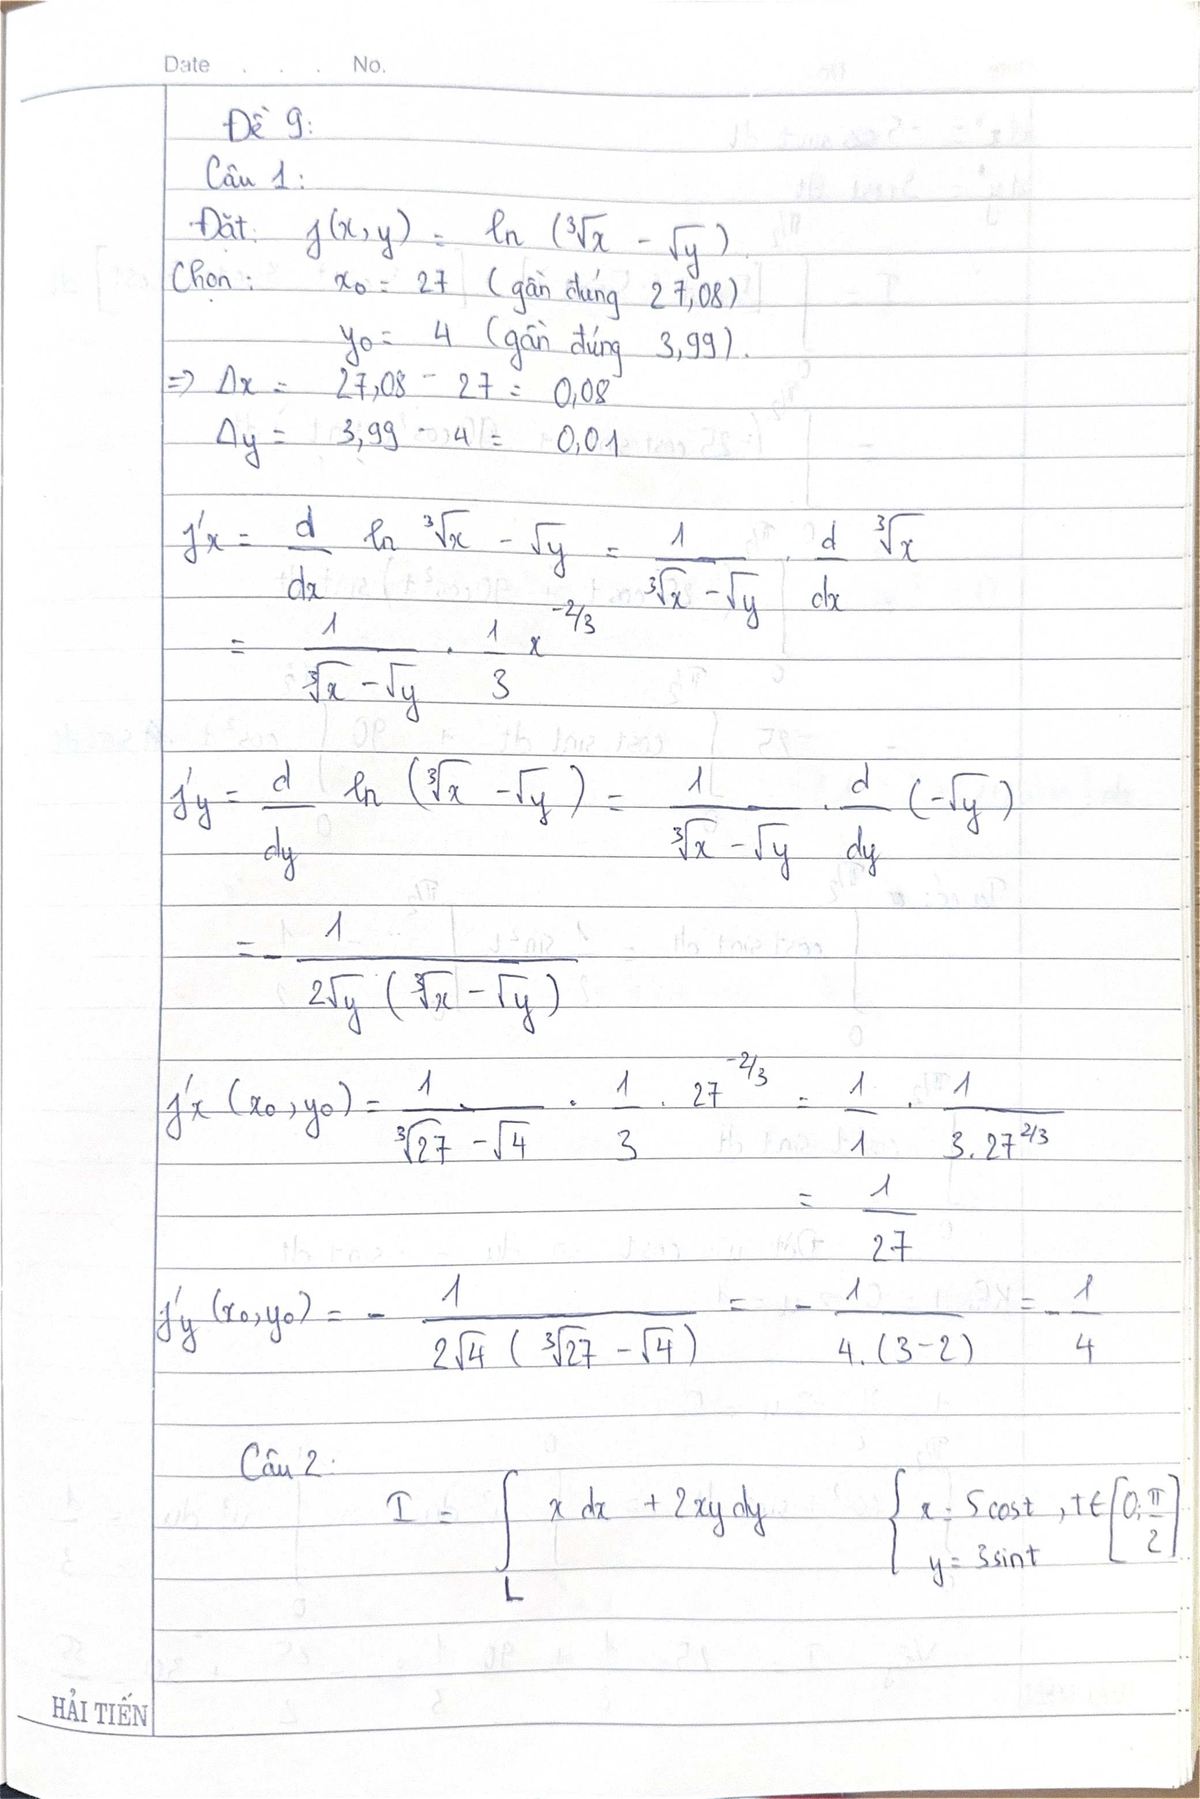 Date . . . No.
Đề 9:
Câu 1:
Đặt: f(x,y) = ln (∛x - √y)
Chọn: x₀ = 27 (gần đúng 27,08)
y₀ = 4 (gần đúng 3,99).
=> Δx = 27,08 - 27 = 0,08
Δy = 3,99 - 4 = 0,01
f'x = d/dx ln ∛x - √y = 1/(∛x - √y) . d/dx ∛x
= 1/(∛x - √y) . 1/3 x^(-2/3)
f'y = d/dy ln (∛x - √y) = 1/(∛x - √y) . d/dy (-√y)
= - 1/(2√y (∛x - √y))
f'x (x₀,y₀) = 1/(∛27 - √4) . 1/3 . 27^(-2/3) = 1/1 . 1/(3.27^(2/3))
= 1/27
f'y (x₀,y₀) = - 1/(2√4 (∛27 - √4)) = - 1/(4.(3-2)) = - 1/4
Câu 2:
I = ∫_L x dx + 2xy dy { x = 5cost , t ∈ [0; π/2]
y = 3sint
HẢI TIẾN